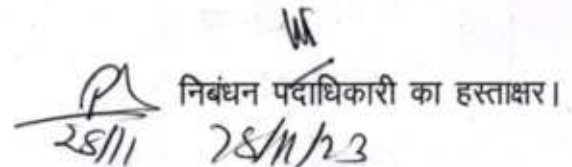 निबंधन पदाधिकारी का हस्ताक्षर।
28/11 28/11/23